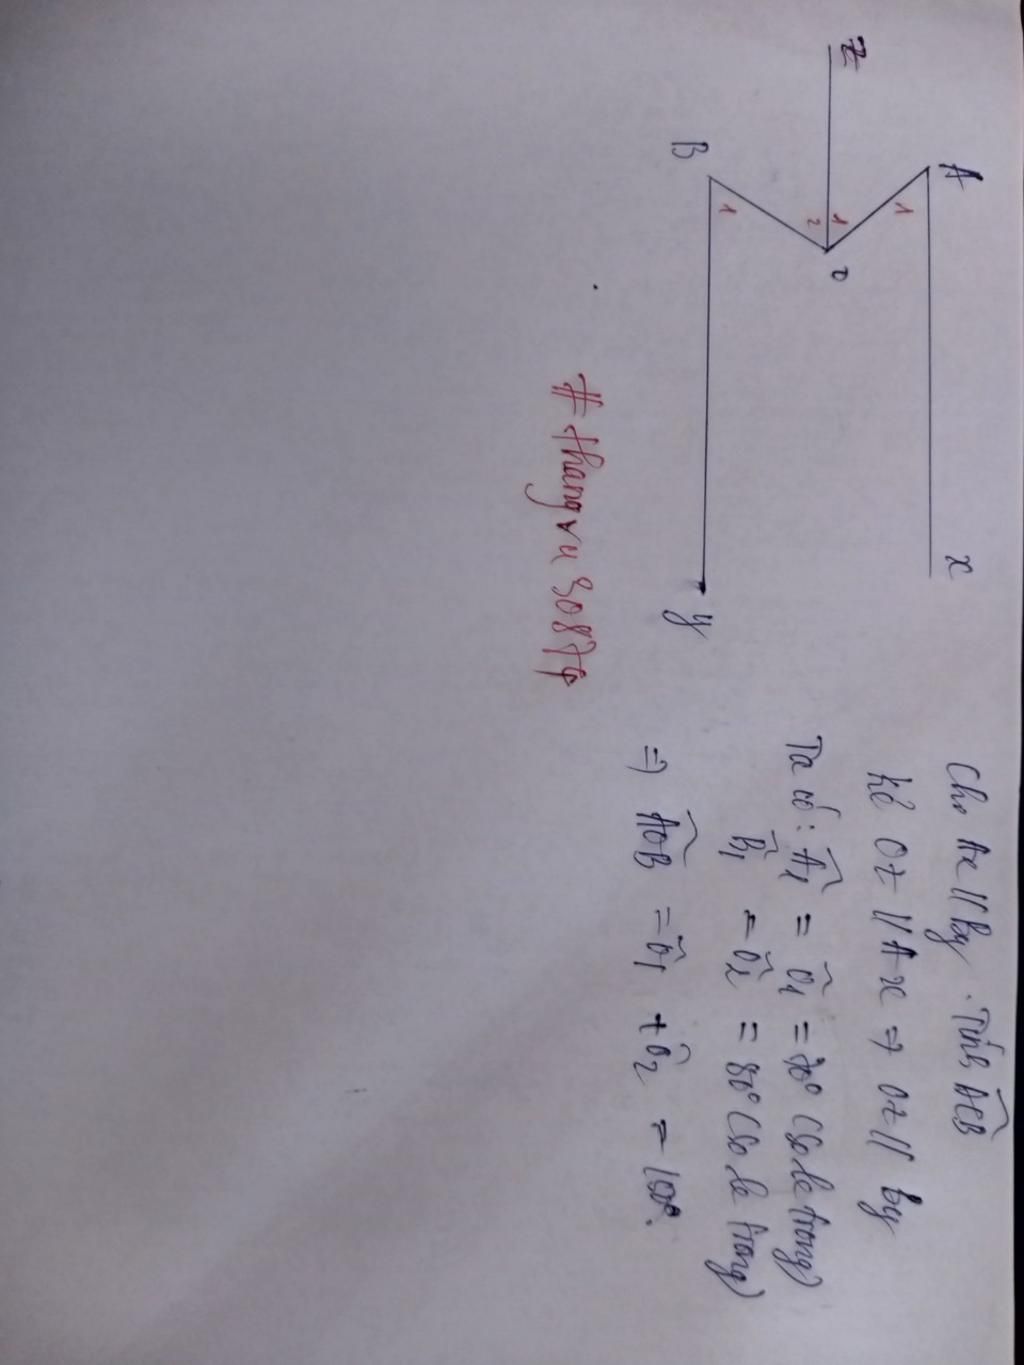 Z
A
B
1
1
2
1
O
x
y
Cho Ax // By. Tính ACB
Kẻ Oz // Ax => Oz // by
Ta có: A1 = O1 = 70° (so le trong)
B1 = O2 = 80° (so le trong)
=> AOB = O1 + O2 = 150°.
#thangvu